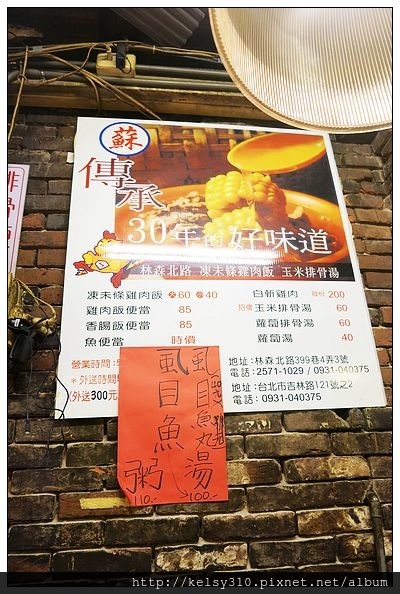 蘇
傳承
30年的好味道
林森北路 凍未條雞肉飯 玉米排骨湯
凍未條雞肉飯 大60 小40
雞肉飯便當 85
香腸飯便當 85
魚便當 時價
白斬雞肉 每份 200
招牌 玉米排骨湯 60
蘿蔔排骨湯 60
蘿蔔湯 40
營業時間:
*外送時間
(外送300元
地址:林森北路399巷4弄3號
電話:2571-1029 / 0931-040375
地址:台北市吉林路121號之2
電話:0931-040375
虱目魚丸湯 100.-
虱目魚粥 110.-
排骨
http://kelsy310.pixnet.net/album